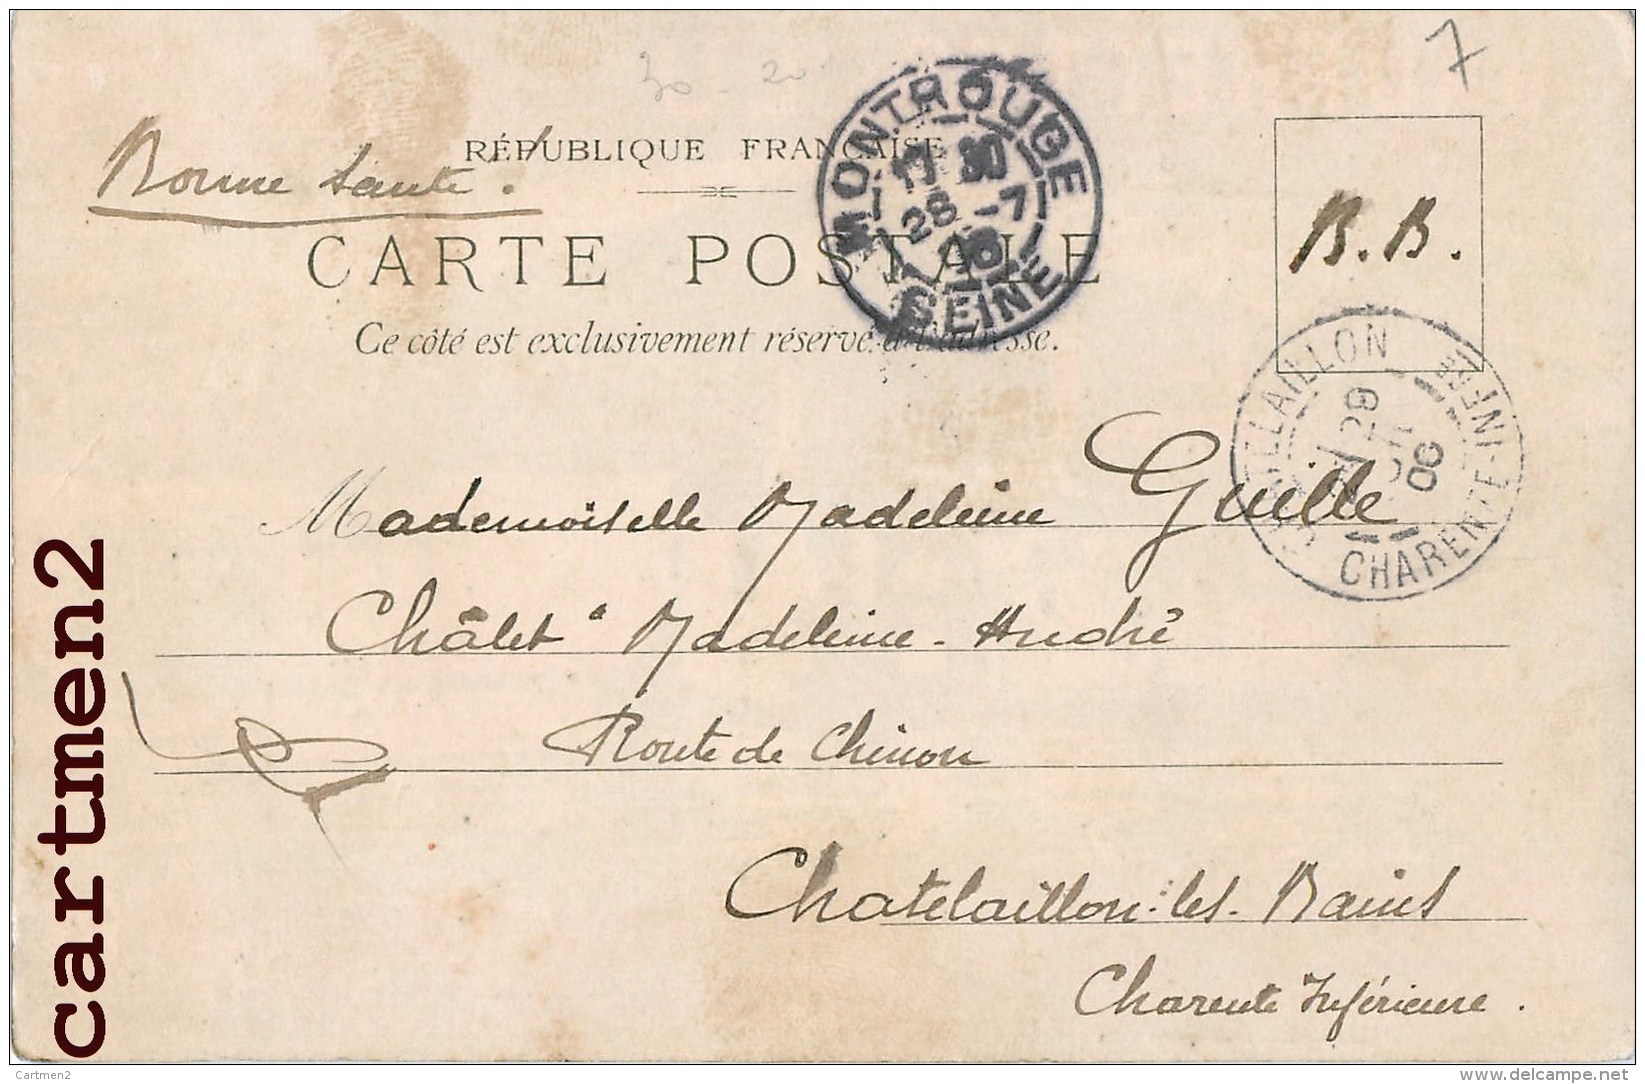 7
30 - 20
RÉPUBLIQUE FRANÇAISE
Bonne Santé.
CARTE POSTALE
Ce côté est exclusivement réservé à l'adresse.
MONTROUGE
17 30
28 -7
SEINE
B. B.
CHATELAILLON
29
06
CHARENTE-INFRE
Mademoiselle Madeleine Guille
Châlet " Madeleine - André
Route de Chinon
Chatelaillon-les-Bains
Charente Inférieure.
cartmen2
Cartmen2
delcampe.net